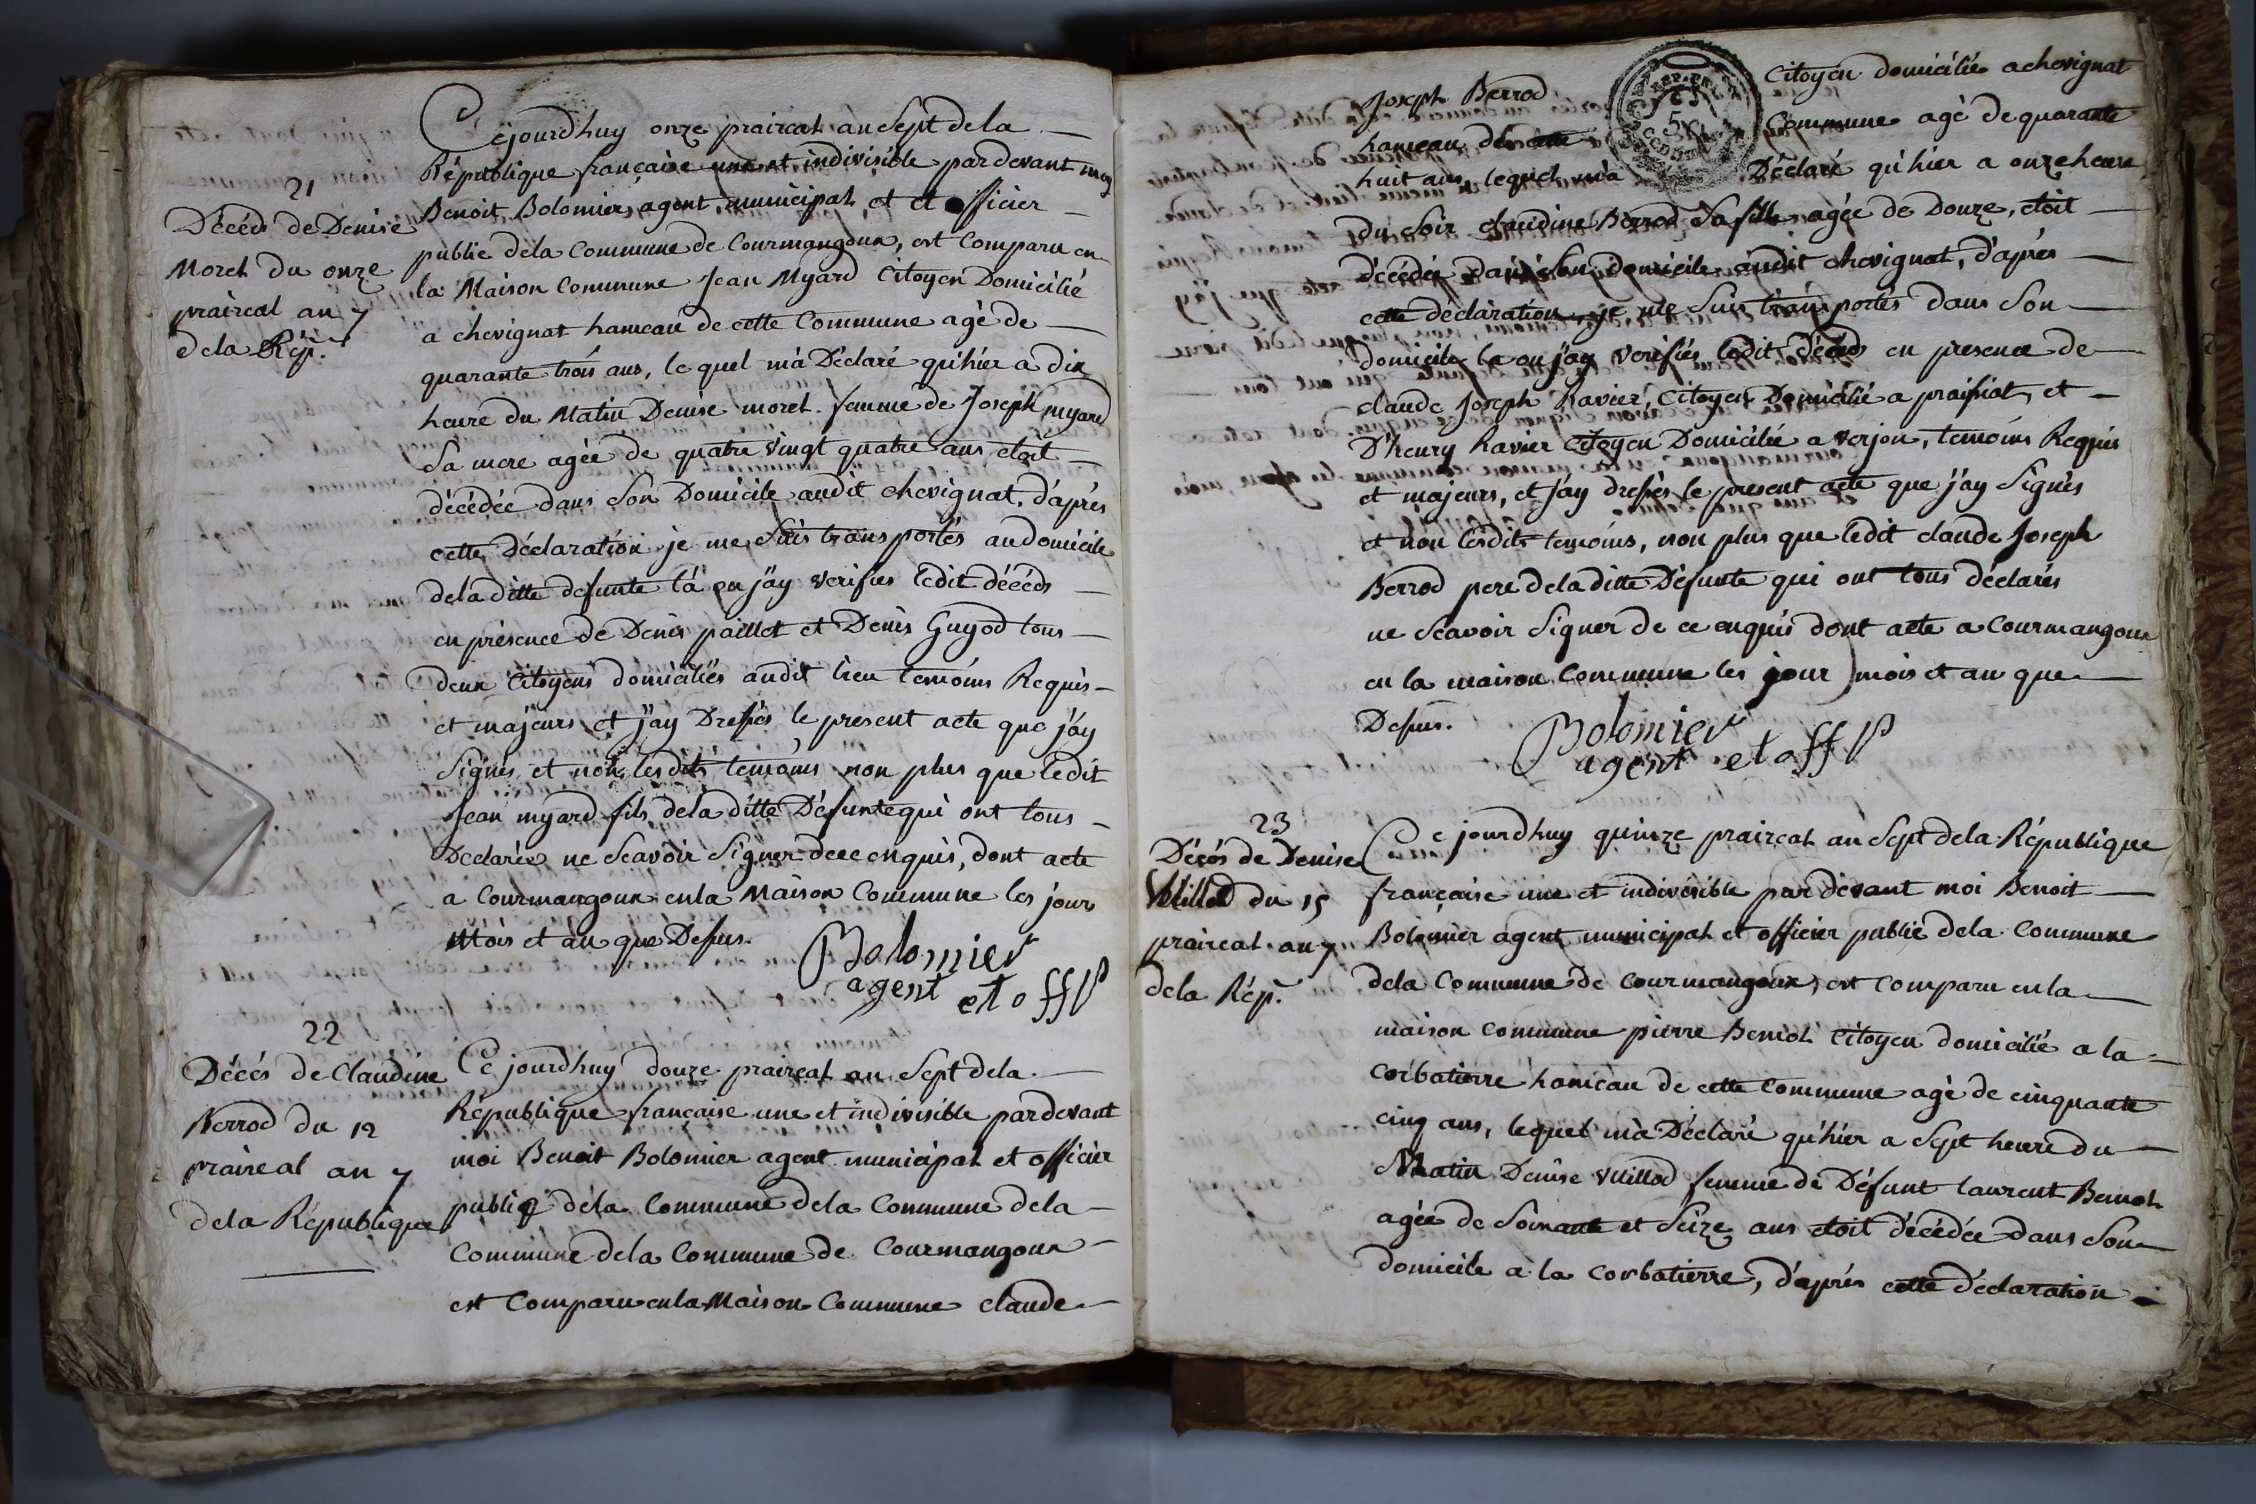 21
Décéds de Denise
Morel du onze
prairéal an 7
de la Rép.
Cejourdhuy onze prairéal an Sept de la
République française une et indivisible pardevant moy
Benoit Bolomier, agent municipal et et officier
public dela Commune de Courmangoux, est Comparu en
la Maison Commune Jean Myard Citoyen Domicilié
a chevignat hameau de cette Commune agé de
quarante trois ans, le quel m'a Déclaré qu'hier a dix
heure du Matin Denise morel femme de Joseph myard
Sa mere agée de quatre vingt quatre ans étoit
décédée dans Son Domicile audit chevignat, d'après
cette Déclaration je me Suis transportés au domicile
dela ditte defunte la ou j'ay verifiés ledit décéds
en présence de Denis paillet et Denis Guyod tous
deux Citoyens domiciliés audit lieu temoins Requis
et majeurs et j'ay Dressés le present acte que j'ay
Signés et non lesdits temoins non plus que ledit
Jean myard fils dela ditte Défunte qui ont tous
Declarés ne Scavoir Signer de ce enquis, dont acte
a Courmangoux en la Maison Commune les jour
Mois et an que Dessus.
Bolomier
agent et offP
22
Décés de Claudine
Berrod du 12
prairéal an 7
dela République
Ce jourdhuy douze prairéal an Sept dela
République française une et indivisible pardevant
moi Benoit Bolomier agent municipal et officier
public dela Commune dela Commune dela
Commune dela Commune de Courmangoux
est Comparu en la Maison Commune claude
Joseph Berrod Citoyen domicilié a chevignat
hameau de cette Commune agé de quarante
huit ans, lequel m'a Déclaré qu'hier a onze heure
du Soir claudine Berrod Sa fille agée de Douze, étoit
décédée dans Son domicile audit chevignat, d'après
cette déclaration je me Suis transportés dans Son
domicile la ou j'ay verifiés ledit décéds en presence de
claude Joseph Ravier, Citoyen Domicilié a praissiat, et
D'henry Ravier Citoyen Domicilié a verjon, temoins Requis
et majeurs, et j'ay dressés le present acte que j'ay Signés
et non lesdits temoins, non plus que ledit claude Joseph
Berrod pere dela ditte Défunte qui ont tous déclarés
ne Scavoir Signer de ce enquis dont acte a Courmangoux
en la maison Commune les jour mois et an que
Dessus.
Bolomier
agent et offP
23
Décés de Denise
Vuillod du 15
prairéal an 7
de la Rép.
Ce jourdhuy quinze prairéal an Sept dela République
française une et indivisible pardevant moi Benoit
Bolomier agent municipal et officier public dela Commune
dela Commune de Courmangoux, est Comparu en la
maison Commune pierre Bernol Citoyen domicilié a la
Corbatierre hameau de cette Commune agé de cinquante
cinq ans, lequel m'a Déclaré qu'hier a Sept heure du
Matin Denise Vuillod femme de Défunt laurent Bernol
agée de Soixante et Seize ans étoit décédée dans Son
domicile a la Corbatierre, d'après cette déclaration